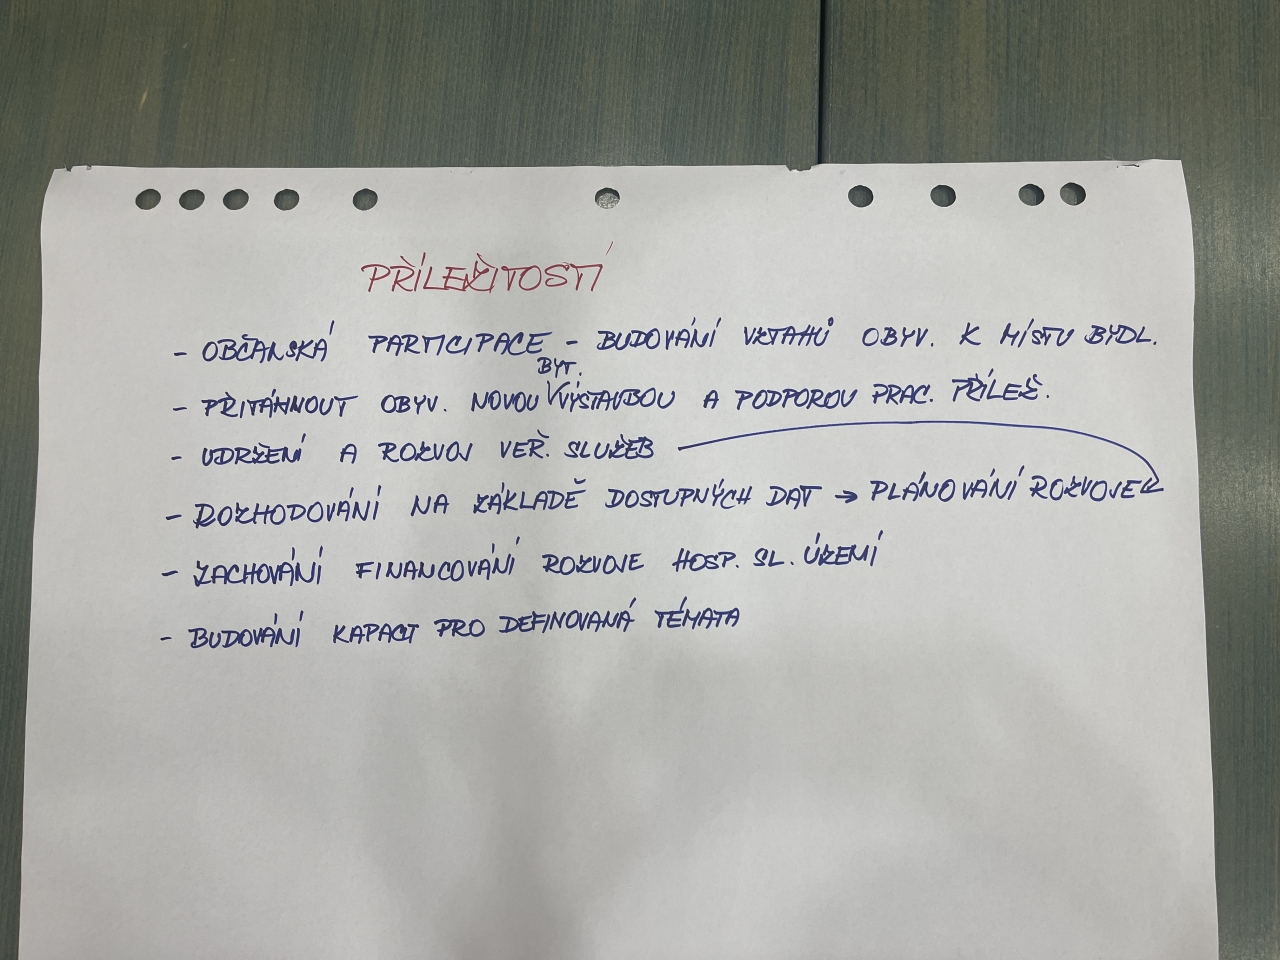 PŘÍLEŽITOSTI
- OBČANSKÁ PARTICIPACE - BUDOVÁNÍ VZTAHŮ OBYV. K MÍSTU BYDL.
- PŘITÁHNOUT OBYV. NOVOU BYT. VÝSTAVBOU A PODPOROU PRAC. PŘÍLEŽ.
- UDRŽENÍ A ROZVOJ VEŘ. SLUŽEB
- ROZHODOVÁNÍ NA ZÁKLADĚ DOSTUPNÝCH DAT → PLÁNOVÁNÍ ROZVOJE
- ZACHOVÁNÍ FINANCOVÁNÍ ROZVOJE HOSP. SL. ÚZEMÍ
- BUDOVÁNÍ KAPACIT PRO DEFINOVANÁ TÉMATA